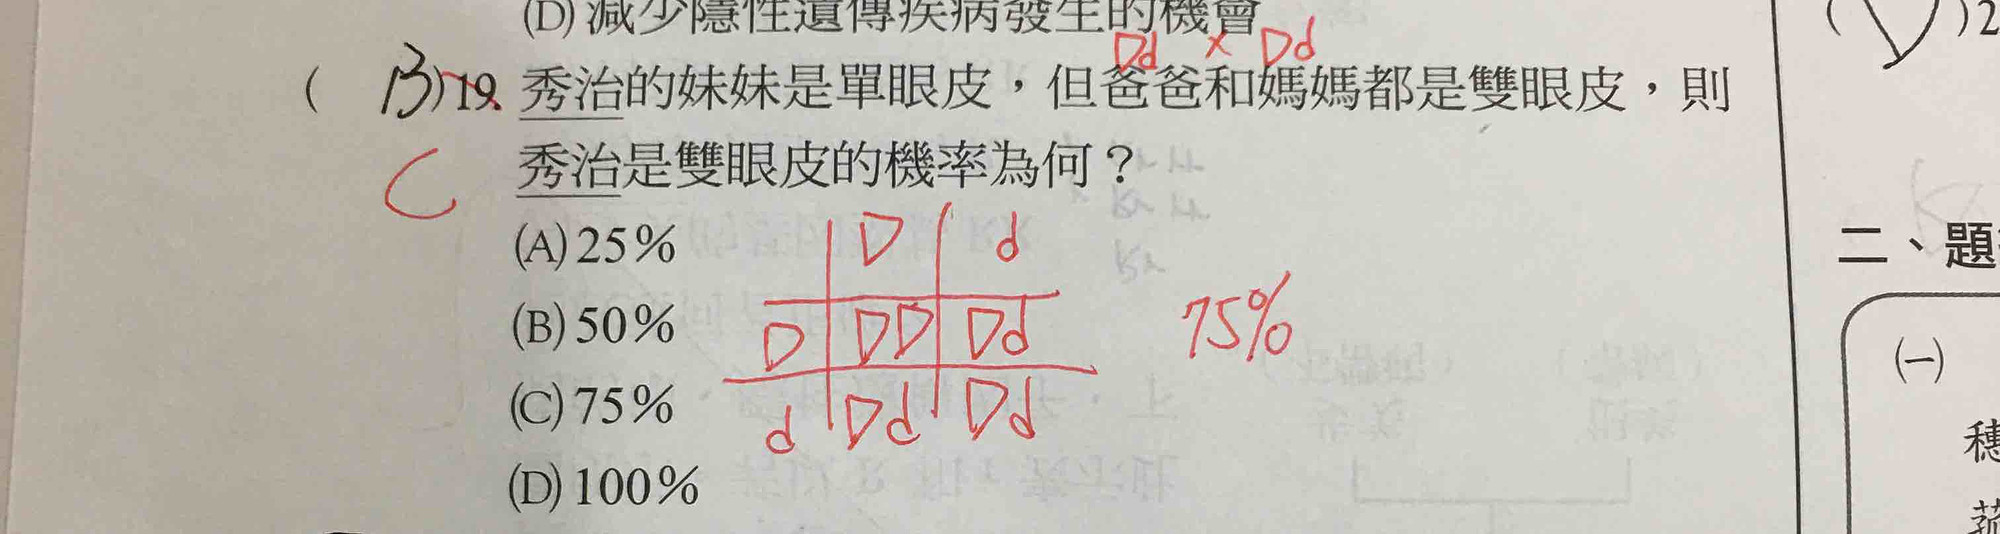 (D)減少隱性遺傳疾病發生的機會
Dd × Dd
( B )19. 秀治的妹妹是單眼皮，但爸爸和媽媽都是雙眼皮，則
C
秀治是雙眼皮的機率為何？
(A)25%
(B)50%
(C)75%
(D)100%
D d
D DD Dd
d Dd Dd
75%
( )2
二、題
(一)
穗